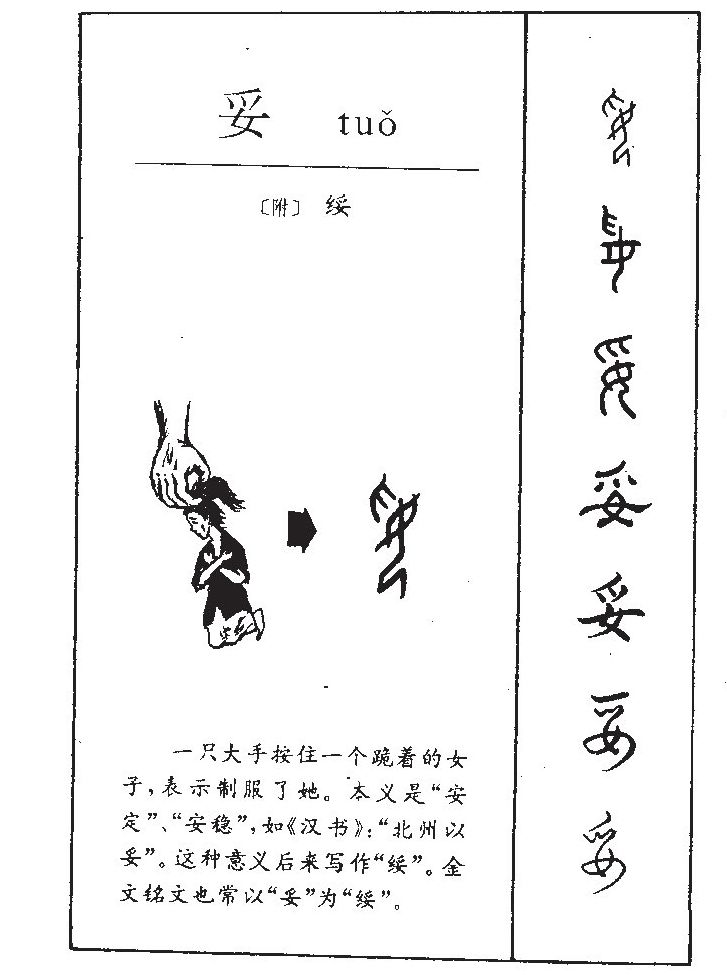 妥 tuǒ
〔附〕 绥
一只大手按住一个跪着的女
子，表示制服了她。本义是“安
定”、“安稳”，如《汉书》：“北州以
妥”。这种意义后来写作“绥”。金
文铭文也常以“妥”为“绥”。
妥
妥
妥
妥
妥
妥
妥
妥